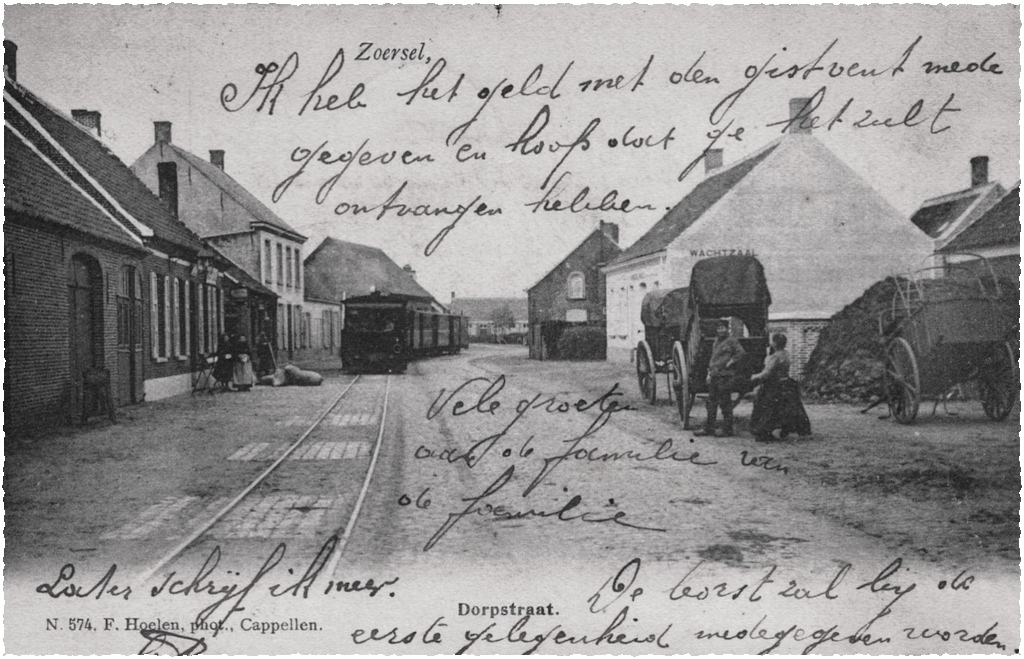 Zoersel,
Ik heb het geld met den gistvent mede
gegeven en hoop dat ge het zult
ontvangen hebben.
WACHTZAAL
Vele groeten
aan de familie van
de familie
Later schrijf ik meer.
De borst zal bij de
eerste gelegenheid medegegeven worden.
Dorpstraat.
N. 574. F. Hoelen, phot., Cappellen.